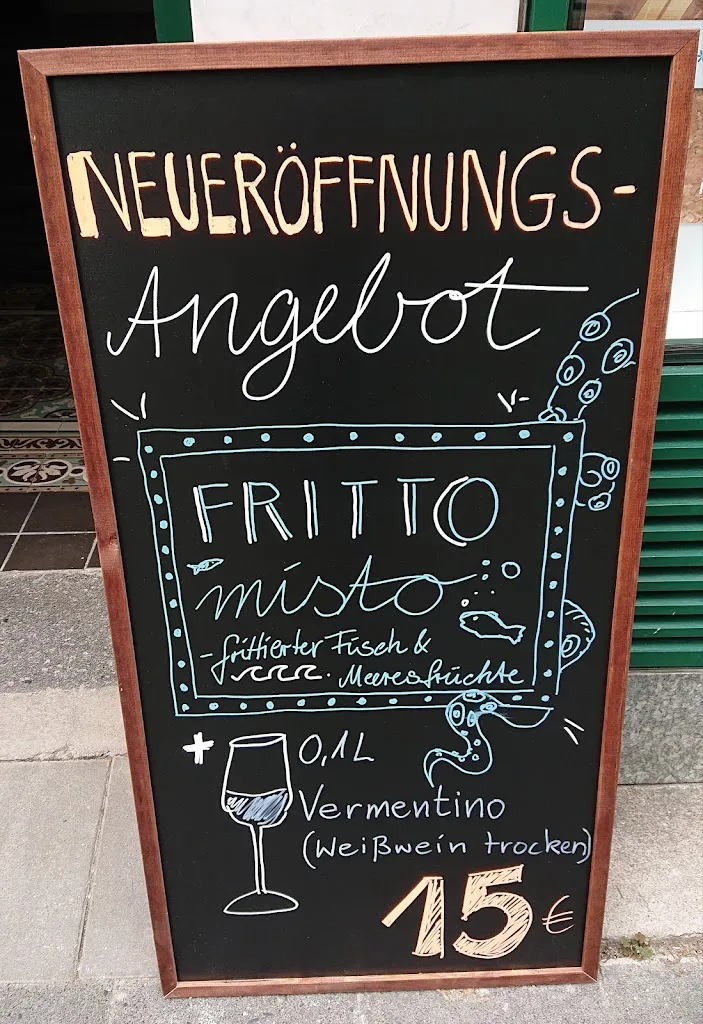 NEUERÖFFNUNGS-
Angebot
FRITTO
misto
- frittierter Fisch &
Meeresfrüchte
+ 0,1L
Vermentino
(Weißwein trocken)
15 €